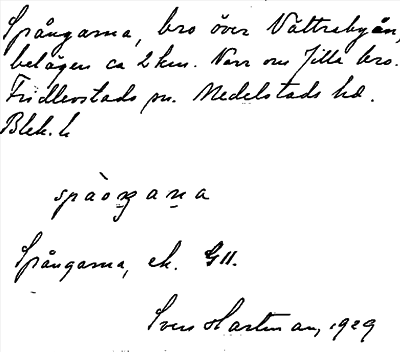 Spångarna, bro över Vättrabyån,
belägen ca 2 km. Norr om Jilla bro.
Fridlevstads sn. Medelstads hd.
Blek. l.
Spångarna, ek. GII.
Sven Hartman, 1929